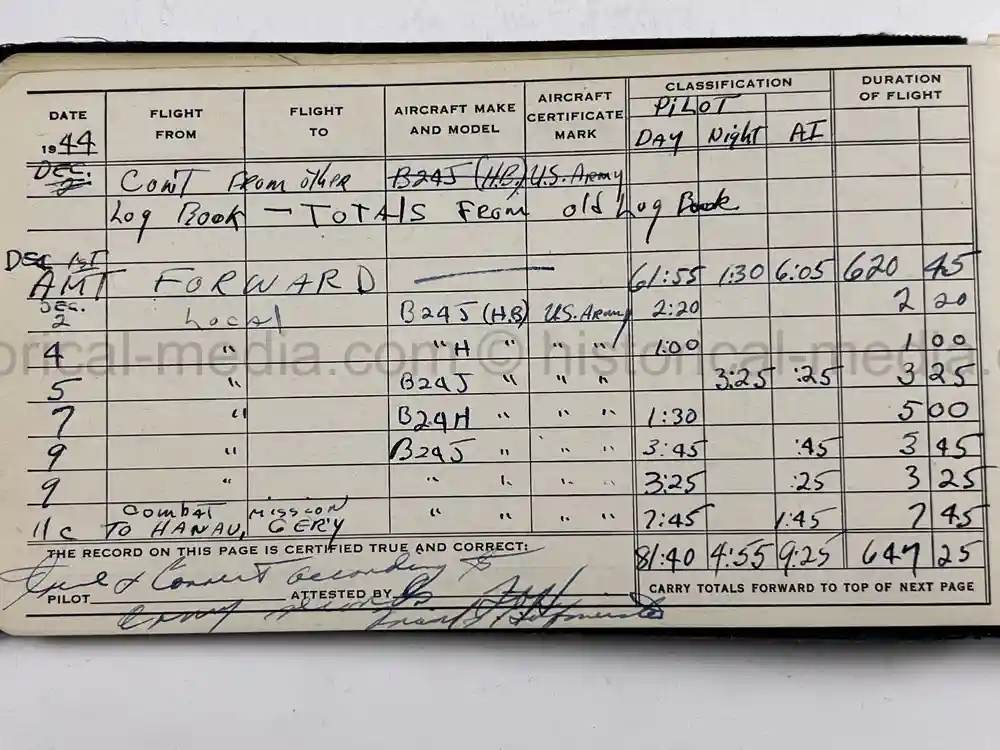 DATE FLIGHT FROM FLIGHT TO AIRCRAFT MAKE AND MODEL AIRCRAFT CERTIFICATE MARK CLASSIFICATION DURATION OF FLIGHT
1944 PILOT DAY Night AI
DEC. 2 CON'T FROM other B24J (H.B.) U.S. Army
Log Book — TOTALS FROM old Log Book
DEC 1ST
AMT FORWARD 61:55 1:30 6:05 620 45
DEC. 2 Local B24J (H.B) U.S. Army 2:20 2 20
4 " " H " " " 1:00 1 00
5 " B24J " " " 3:25 :25 3 25
7 " B24H " " " 1:30 5 00
9 " B24J " " " 3:45 :45 3 45
9 " " " " " 3:25 :25 3 25
11 c Combat Mission TO HANAU, GER'Y " " " " 7:45 1:45 7 45
81:40 4:55 9:25 647 25
THE RECORD ON THIS PAGE IS CERTIFIED TRUE AND CORRECT:
True & Correct according to
PILOT ATTESTED BY
army records
CARRY TOTALS FORWARD TO TOP OF NEXT PAGE
orical-media.com © historical-media.com